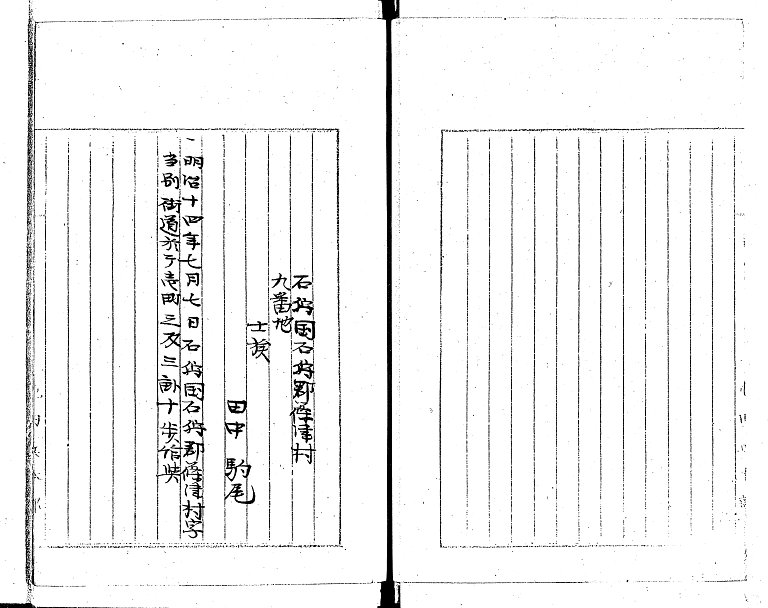 石狩国石狩郡篠津村
九番地
士族
田中駒尾
一明治十四年七月七日石狩国石狩郡篠津村字
当別街道於テ壱町三反三畝十歩